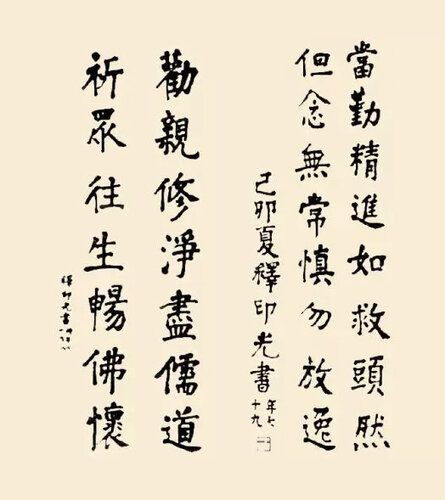 當勤精進如救頭然
但念無常慎勿放逸
己卯夏釋印光書
年七
十九
勸親修淨盡儒道
祈眾往生暢佛懷
釋印光書